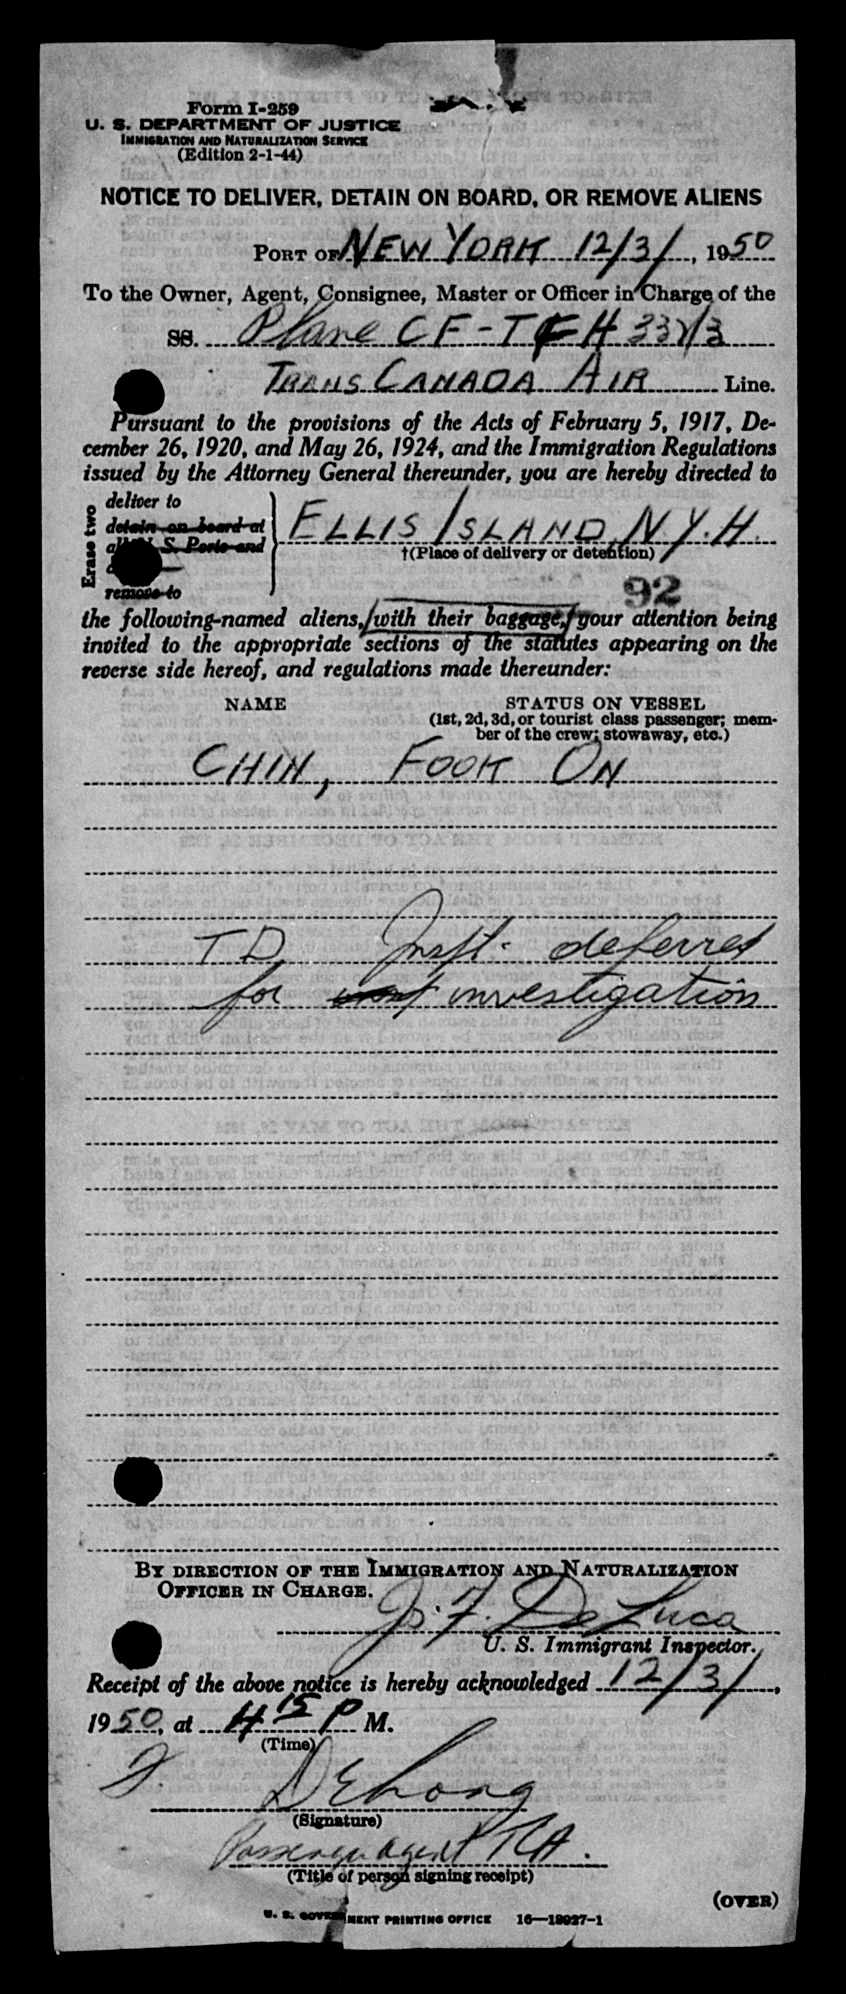 Form I-259
U. S. DEPARTMENT OF JUSTICE
IMMIGRATION AND NATURALIZATION SERVICE
(Edition 2-1-44)
NOTICE TO DELIVER, DETAIN ON BOARD, OR REMOVE ALIENS
PORT OF NEW YORK 12/3/, 1950
To the Owner, Agent, Consignee, Master or Officer in Charge of the
SS. Plane CF-TFH
TRANS CANADA AIR Line.
Pursuant to the provisions of the Acts of February 5, 1917, De-
cember 26, 1920, and May 26, 1924, and the Immigration Regulations
issued by the Attorney General thereunder, you are hereby directed to
Erase two
deliver to
detain on board at
S. Ports and
remove to
ELLIS ISLAND, N.Y.H.
†(Place of delivery or detention)
92
the following-named aliens, with their baggage, your attention being
invited to the appropriate sections of the statutes appearing on the
reverse side hereof, and regulations made thereunder:
NAME STATUS ON VESSEL
(1st, 2d, 3d, or tourist class passenger; mem-
ber of the crew; stowaway, etc.)
CHIN, FOOK ON
TD Inspt. deferred
for investigation
BY DIRECTION OF THE IMMIGRATION AND NATURALIZATION
OFFICER IN CHARGE.
J. F. De Luca
U. S. Immigrant Inspector.
Receipt of the above notice is hereby acknowledged 12/3/,
1950, at 4 15 P M.
(Time)
(Signature)
Passenger agent TCA.
(Title of person signing receipt)
(OVER)
U. S. GOVERNMENT PRINTING OFFICE 16—18927-1